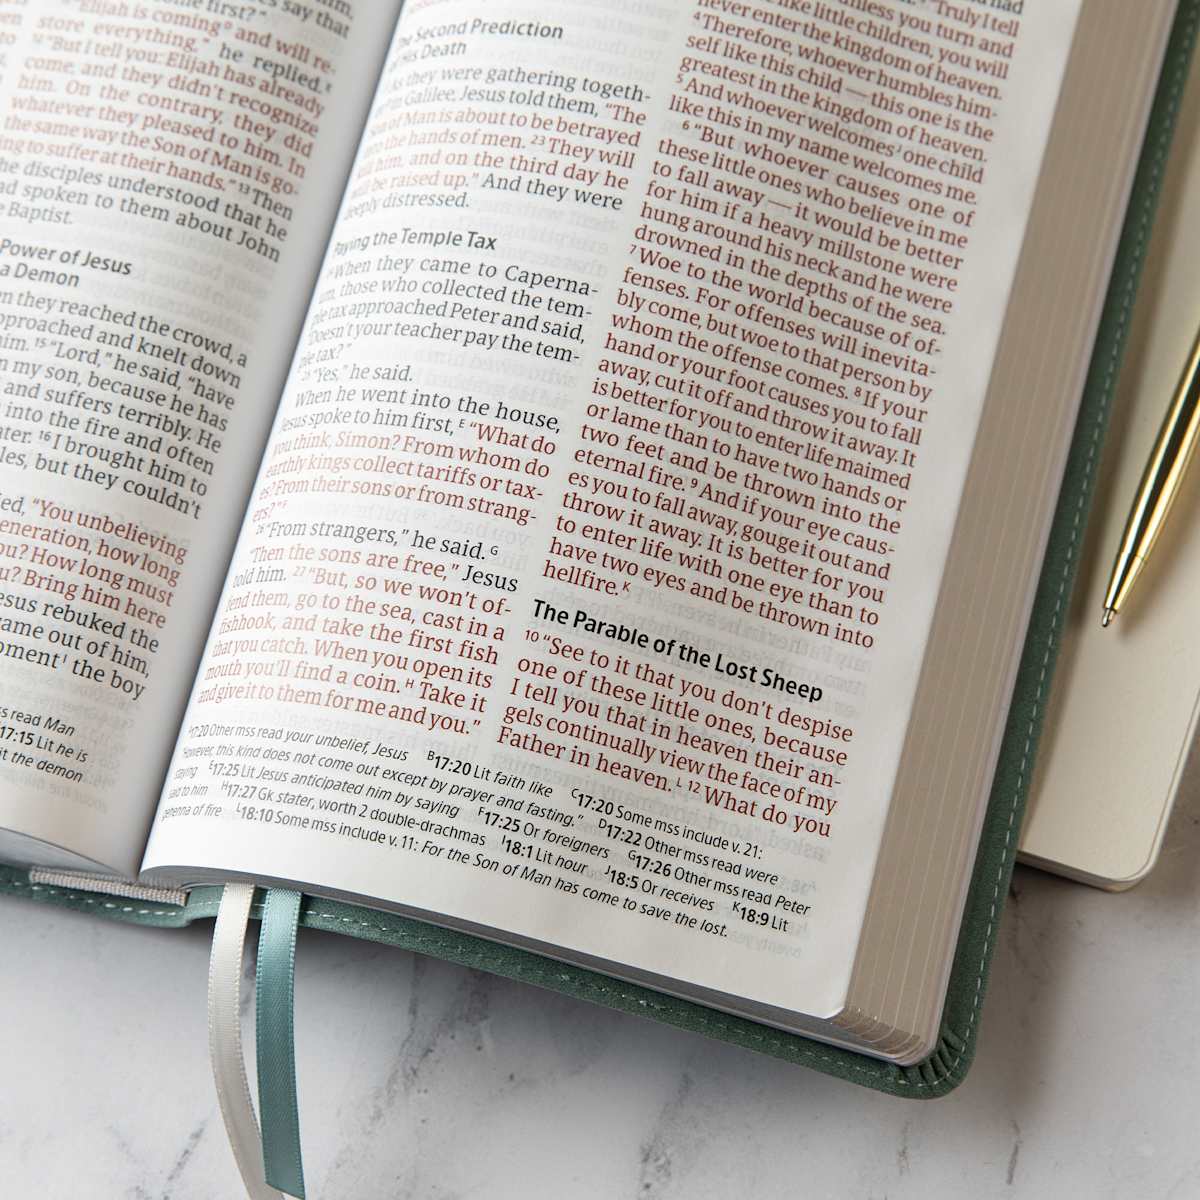 es say that
come first?"
"Elijah is coming D and will re-
store everything," he replied. E
12 "But I tell you: Elijah has already
come, and they didn't recognize
him. On the contrary, they did
whatever they pleased to him. In
the same way the Son of Man is go-
ing to suffer at their hands." 13 Then
the disciples understood that he
had spoken to them about John
the Baptist.
Power of Jesus
a Demon
en they reached the crowd, a
approached and knelt down
him. 15 "Lord," he said, "have
on my son, because he has
and suffers terribly. He
into the fire and often
ater. 16 I brought him to
les, but they couldn't
ied, "You unbelieving
eneration, how long
ou? How long must
u? Bring him here
esus rebuked the
came out of him,
oment I the boy
ss read Man
17:15 Lit he is
it the demon
The Second Prediction
of His Death
As they were gathering togeth-
er in Galilee, Jesus told them, "The
Son of Man is about to be betrayed
into the hands of men. 23 They will
kill him, and on the third day he
will be raised up." And they were
deeply distressed.
Paying the Temple Tax
24 When they came to Caperna-
um, those who collected the tem-
ple tax approached Peter and said,
"Doesn't your teacher pay the tem-
ple tax?"
25 "Yes," he said.
When he went into the house,
Jesus spoke to him first, E "What do
you think, Simon? From whom do
earthly kings collect tariffs or tax-
es? From their sons or from strang-
ers?" F
26 "From strangers," he said. G
"Then the sons are free," Jesus
told him. 27 "But, so we won't of-
fend them, go to the sea, cast in a
fishhook, and take the first fish
that you catch. When you open its
mouth you'll find a coin. H Take it
and give it to them for me and you."
"Truly I tell
unless you turn and
like little children, you will
never enter the kingdom of heaven.
4 Therefore, whoever humbles him-
self like this child — this one is the
greatest in the kingdom of heaven.
5 And whoever welcomes J one child
like this in my name welcomes me.
6 "But whoever causes one of
these little ones who believe in me
to fall away — it would be better
for him if a heavy millstone were
hung around his neck and he were
drowned in the depths of the sea.
7 Woe to the world because of of-
fenses. For offenses will inevita-
bly come, but woe to that person by
whom the offense comes. 8 If your
hand or your foot causes you to fall
away, cut it off and throw it away. It
is better for you to enter life maimed
or lame than to have two hands or
two feet and be thrown into the
eternal fire. 9 And if your eye caus-
es you to fall away, gouge it out and
throw it away. It is better for you
to enter life with one eye than to
have two eyes and be thrown into
hellfire. K
The Parable of the Lost Sheep
10 "See to it that you don't despise
one of these little ones, because
I tell you that in heaven their an-
gels continually view the face of my
Father in heaven. L 12 What do you
A 17:20 Other mss read your unbelief, Jesus B 17:20 Lit faith like C 17:20 Some mss include v. 21:
"However, this kind does not come out except by prayer and fasting." D 17:22 Other mss read were
saying E 17:25 Lit Jesus anticipated him by saying F 17:25 Or foreigners G 17:26 Other mss read Peter
said to him H 17:27 Gk stater, worth 2 double-drachmas I 18:1 Lit hour J 18:5 Or receives K 18:9 Lit
gehenna of fire L 18:10 Some mss include v. 11: For the Son of Man has come to save the lost.